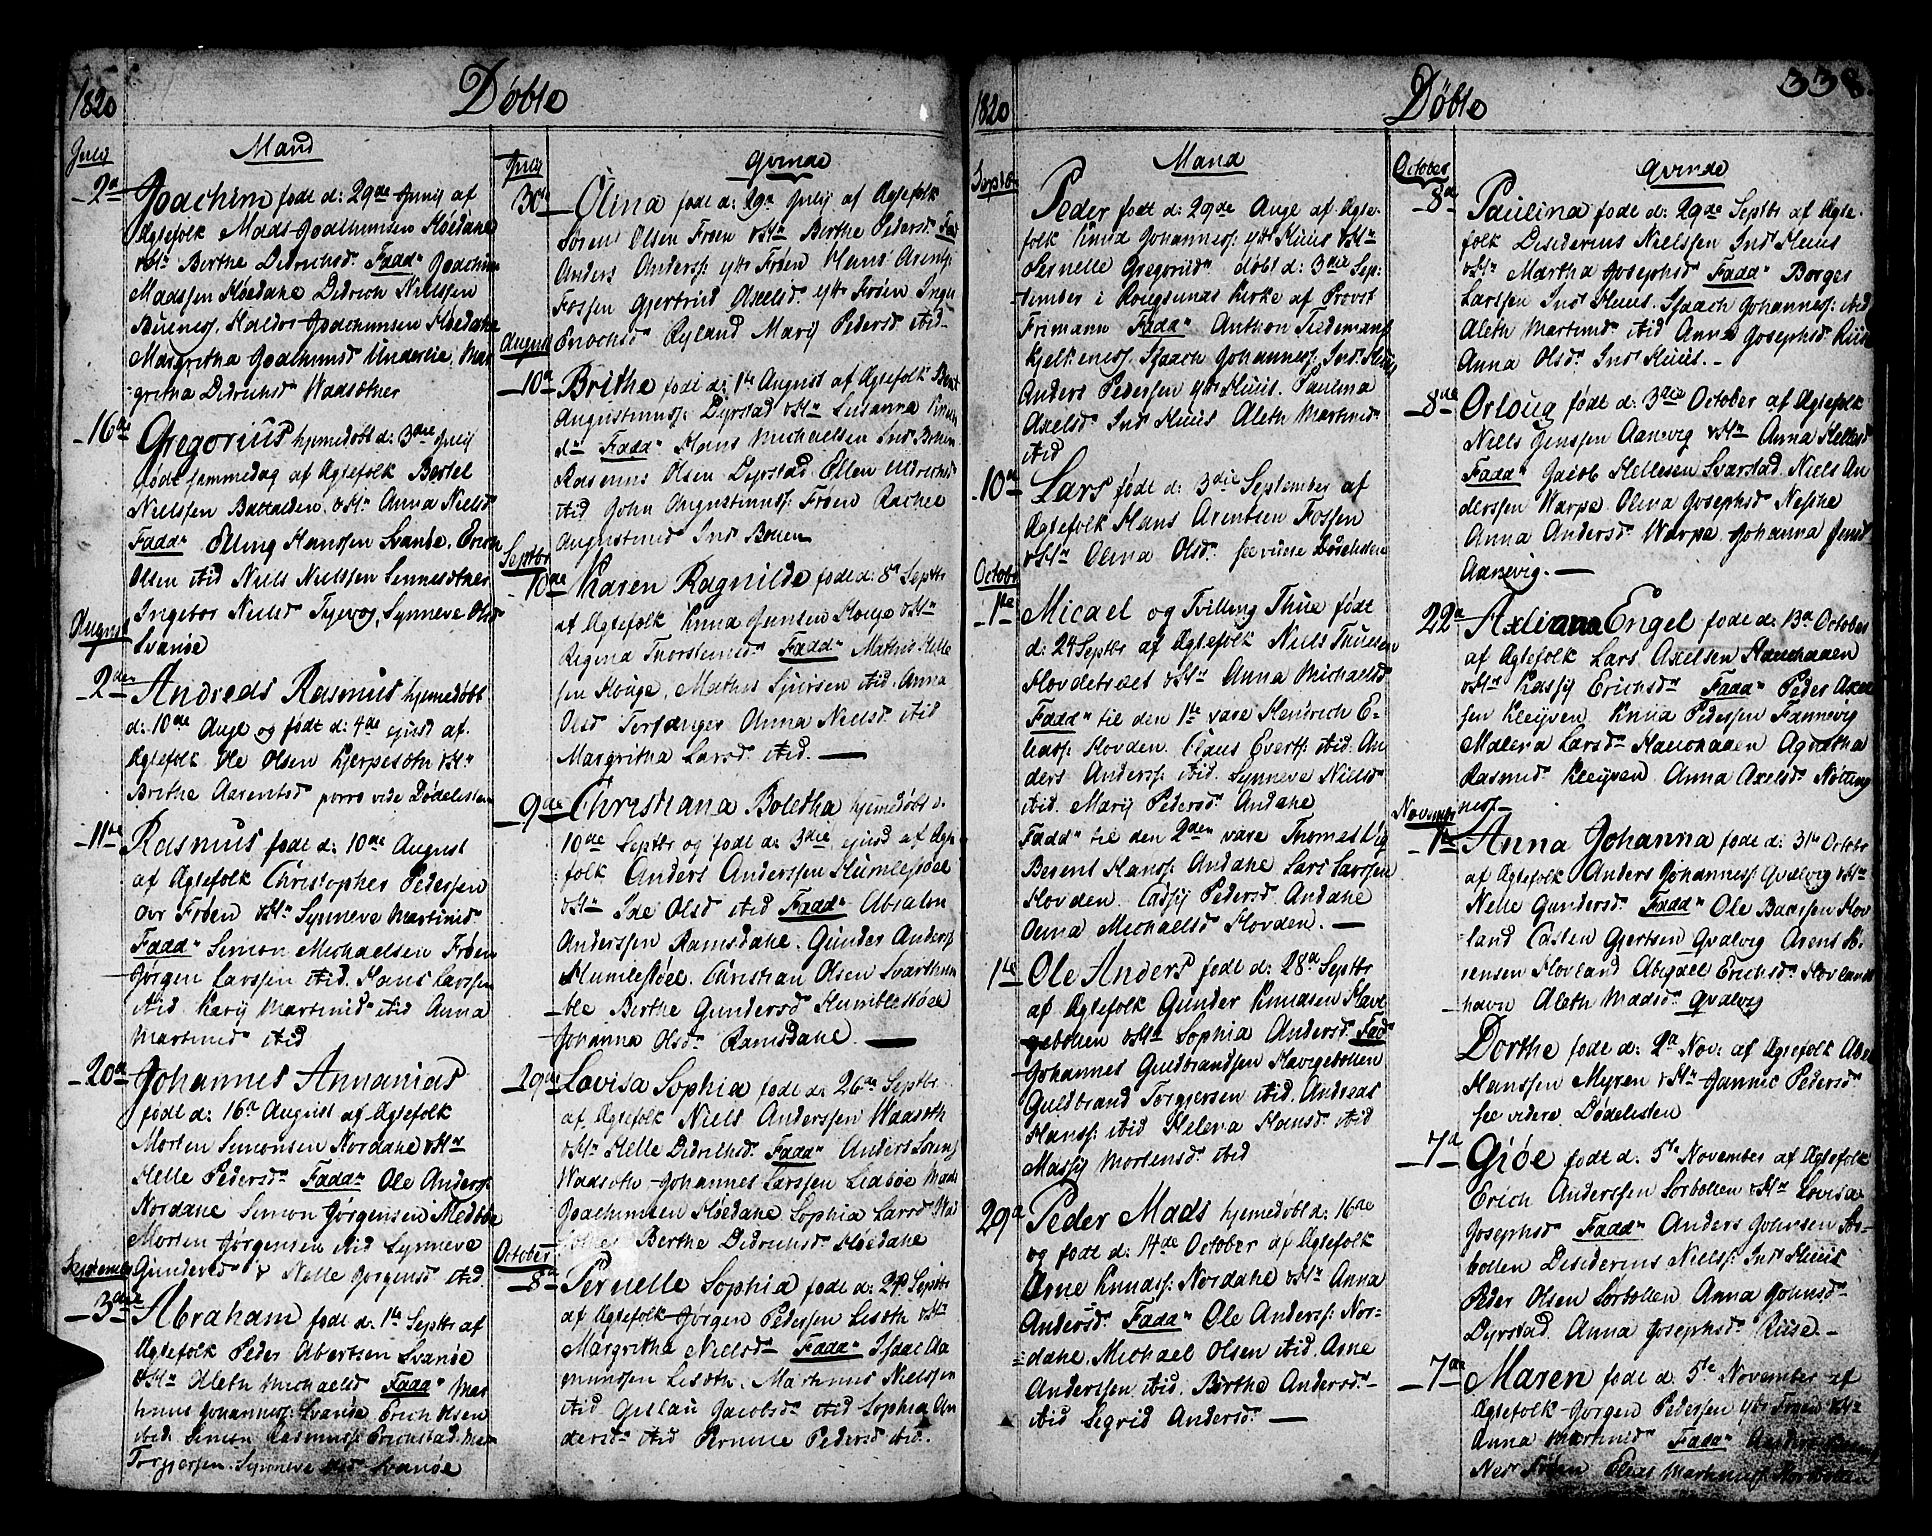 1820
Døbte
Mand
Julij
2a Joachim født d: 29de Junij af
Ægtefolk Mads Joachimsen Høedahl
&H: Berthe Didrichsd. Fadd: Joachim
Madssen Høedahl Didrich Nielssen
Haldor Joachimsen Høedahl
Margretha Joachimsd Underlie, Mar
gretha Didrichsd Waasøtner
16de Gregorius hjemedøbt d: 3die Julij
født sammedag af Ægtefolk Bertel
Nielssen Batalden &H: Anna Nielsd
Fadd: Elling Hanssen Svanøe, Erich
Olsen ibid Niels Nielssen Sennesøtner
Ingebor Nielsd Synneve Olsd
Svanøe
August
2den Andreas Rasmus hjemedøbt
d: 10de Aug og født d: 4de ejusd af
Ægtefolk Ole Olsen &H:
Brithe Aarentsd porro vide Dødelisten
11te Rasmus født d: 10de August
af Ægtefolk Christopher Pedersen
Frøen &H: Synneve Martinisd
Fadd: Simon Michaelsen Frøen
Jørgen Larssen ibid. Hans Larssen
ibid Karij Martinisd ibid Anna
Martinisd ibid
20de Johannes Annanias
født d: 16de August af Ægtefolk
Morten Simonsen Nordahl &H:
Helle Pedersd: Fadd: Ole Anders:
Nordahl Simon Jørgensen Medbøe
Morten Jørgensen ibid Synneve
Gundersd & Nelle Jørgensd ibid.
September
3die Abraham født d: 1te Septbr af
Ægtefolk Peder Abertsen Svanøe
&H: Aleth Michaelsd Fadd: Mar
thinus Johanness: Svanøe Erich Olsen
ibid. Simon Rasmuss:
Torgersen. Synneve Svanøe
Julij
Qvinde
30te Olina født d: 29de Julij af Ægtefolk
Søren Olsen Frøen &H: Berthe Pedersd Fad
Anders Anderss: ytr Frøen Hans Arents:
Fossen Gjertrud Axelsd. ytr Frøen Inger
Enochsd Ryland Marij Pedersd ibid
August
10de Brithe født d: 1te August af Ægtefolk Bent
Augustinuss: Dyrstad &H: Susanna Knu
d: Fadd: Hans Michaelsen Indr Bruen
Rasmus Olsen Dyrstad Ellen Didrichsd
ibid John Augustinuss: Frøen Rachel
Augustinisd Indr Bouen
Septbr
10de Karen Ragnilde født d: 8de Septbr
af Ægtefolk Knud Jonssen Houge &H:
Regina Thorsteinsd Fadd: Mathis Helle
sen Houge, Mathis Sjursen ibid. Anna
Olsd Torsanger Anna Nielsd ibid
Margritha Larsd ibid. —
9de Christiana Boletha hjemedøbt d.
10de Septbr og født d: 3die ejusd af Ægte
folk Anders Anderssen Humlestøel
&H: Ide Olsd ibid Fadd: Absalon
Anderssen Ramsdahl. Gunder Anders
Humlestøel. Christian Olsen Svarthum
ble Berthe Gundersd Humblestøel
Johanna Olsd: Ramsdahl. —
29de Lovisa Sophia født d: 26de Septbr
af Ægtefolk Niels Anderssen Waasøth
&H: Helle Didrichsd: Fadd: Anders Søren
Waasøth Johannes Larssen Lidbøe Mads
Joachimsen Høedahl Sophia Larsd
Berthe Didrichsd: Høedahl
October
8de Pernelle Sophia født d: 29. Septbr
af Ægtefolk Jørgen Pedersen Lisøth &H:
Margritha Nielsd: Fadd: Isaac Aa
mundsen Lisøth. Martinus Nielssen
ibid Gillau Jacobsd: ibid Sophia An
dersd: ibid Pernille Pedersd ibid.
1820
Døbte
338.
Septbr
Mand
Peder født d: 29de Aug: af Ægte-
folk Knud Johanness: ytr Huus &H:
Pernelle Gregoriid: døbt d: 3die Sep-
tember i Rougsunds Kirke af Provst
Frimann Fadd: Anthon Tiedemand
Kjelkeness. Isaach Johanness: Indr Huus
Anders Pedersen ytr Huus. Paulina
Axelsd Indr Huus Aleth Martinisd
ibid
10de Lars født d: 3die September af
Ægtefolk Hans Arentsen Fossen
&H: Olina Olsd. see Dødelisten
October
1te Micael og Tvilling Thue født
d: 24 Septbr af Ægtefolk Niels Thuesen
Hovdetræet &H: Anna Michaelsd
Fadd: til den 1te vare Hendrich E-
liass: Hovden. Claus Everts: ibid. An
ders Anders: ibid. Synneve Nielsd
ibid. Marij Pedersd. Andahl
Fadd: til den 2den vare Thomes Vig
Berent Hans: Andahl Lars Larssen
Hovden. Casij Pedersd. Andahl
Anna Michaelsd Hovden. —
1te Ole Anders født d: 28de Septbr
af Ægtefolk Gunder Knudsen Have
gebotten &H: Sophia Andersd: Fad
Johannes Guldbrandsen Havgebotten
Guldbrand Torgersen ibid. Andreas
Hanss: ibid Helena Hansd. ibid
Massij Mortensd: ibid
29de Peder Mads hjemedøbt d: 16de
og født d: 14de October af Ægtefolk
Arne Knudss: Nordahl &H: Anna
Andersd: Fadd: Ole Anderss: Nor-
dahl, Michael Olsen ibid. Arne
Anderssen ibid. Birthe Andersd:
ibid Sigrid Andersd: —
October
Qvinde
8de Paulina født d: 29de Septbr af Ægte-
folk Desiderius Nielssen Indr Huus
&H: Martha Josephsd Fadd: Borger
Larssen Indr Huus. Isaach Johanness: ibid
Aleth Martinisd ibid Anna Josephsd. Riise
Anna Olsd. Indr Huus. —
8de Orloug født d: 3die October af Ægtefolk
Niels Jenssen Aanevig &H: Anna Hellisd
Fadd: Jacob Hellesen Svarstad. Niels An
derssen Warpe. Olina Josephsd Neshe
Anna Andersd: Warpe Johanna Jensd
Aanevig. —
22de Axliana Engel født d: 13de October
af Ægtefolk Lars Axelsen Hauchaaen
&H: Kassij Erichsd: Fadd: Peder Axel
sen Kleyven Knud Pedersen Fannevig
Malena Larsd: Hauchaaen Agnetha
Rasmisd Kleyven. Anna Axelsd: Nøtting
ness —
November
1te Anna Johanna født d: 31te Octobr
af Ægtefolk Anders Johanness: Qvalvig &H:
Nelle Gundersd: Fadd: Ole Baardsen Hov
land Casten Gjertsen Qvalvig Arent Sø-
rensen Hovland Abigael Erichsd: Hovland
havn Aleth Madsd: Qvalvig
Dorthe født d: 2de Nov: af Ægtefolk Abel
Hanssen Myren &H: Jannic Pedersd
see videre Dødelisten
7de Giøe født d: 5te November af Ægtefolk
Erich Anderssen Sørbotten &H: Lovisa
Josephsd Fadd: Anders Johnsen Sør-
botten Desiderius Nielss: Indr Huus
Peder Olsen Sørbotten Anna Johnsd:
Dyrstad. Anna Josephsd: Riise. —
7de Maren født d. 5te November af
Ægtefolk Jørgen Pedersen ytr Frøen &H:
Anna Martinisd: Fadd: Anders
Frøen Elias Martinuss: